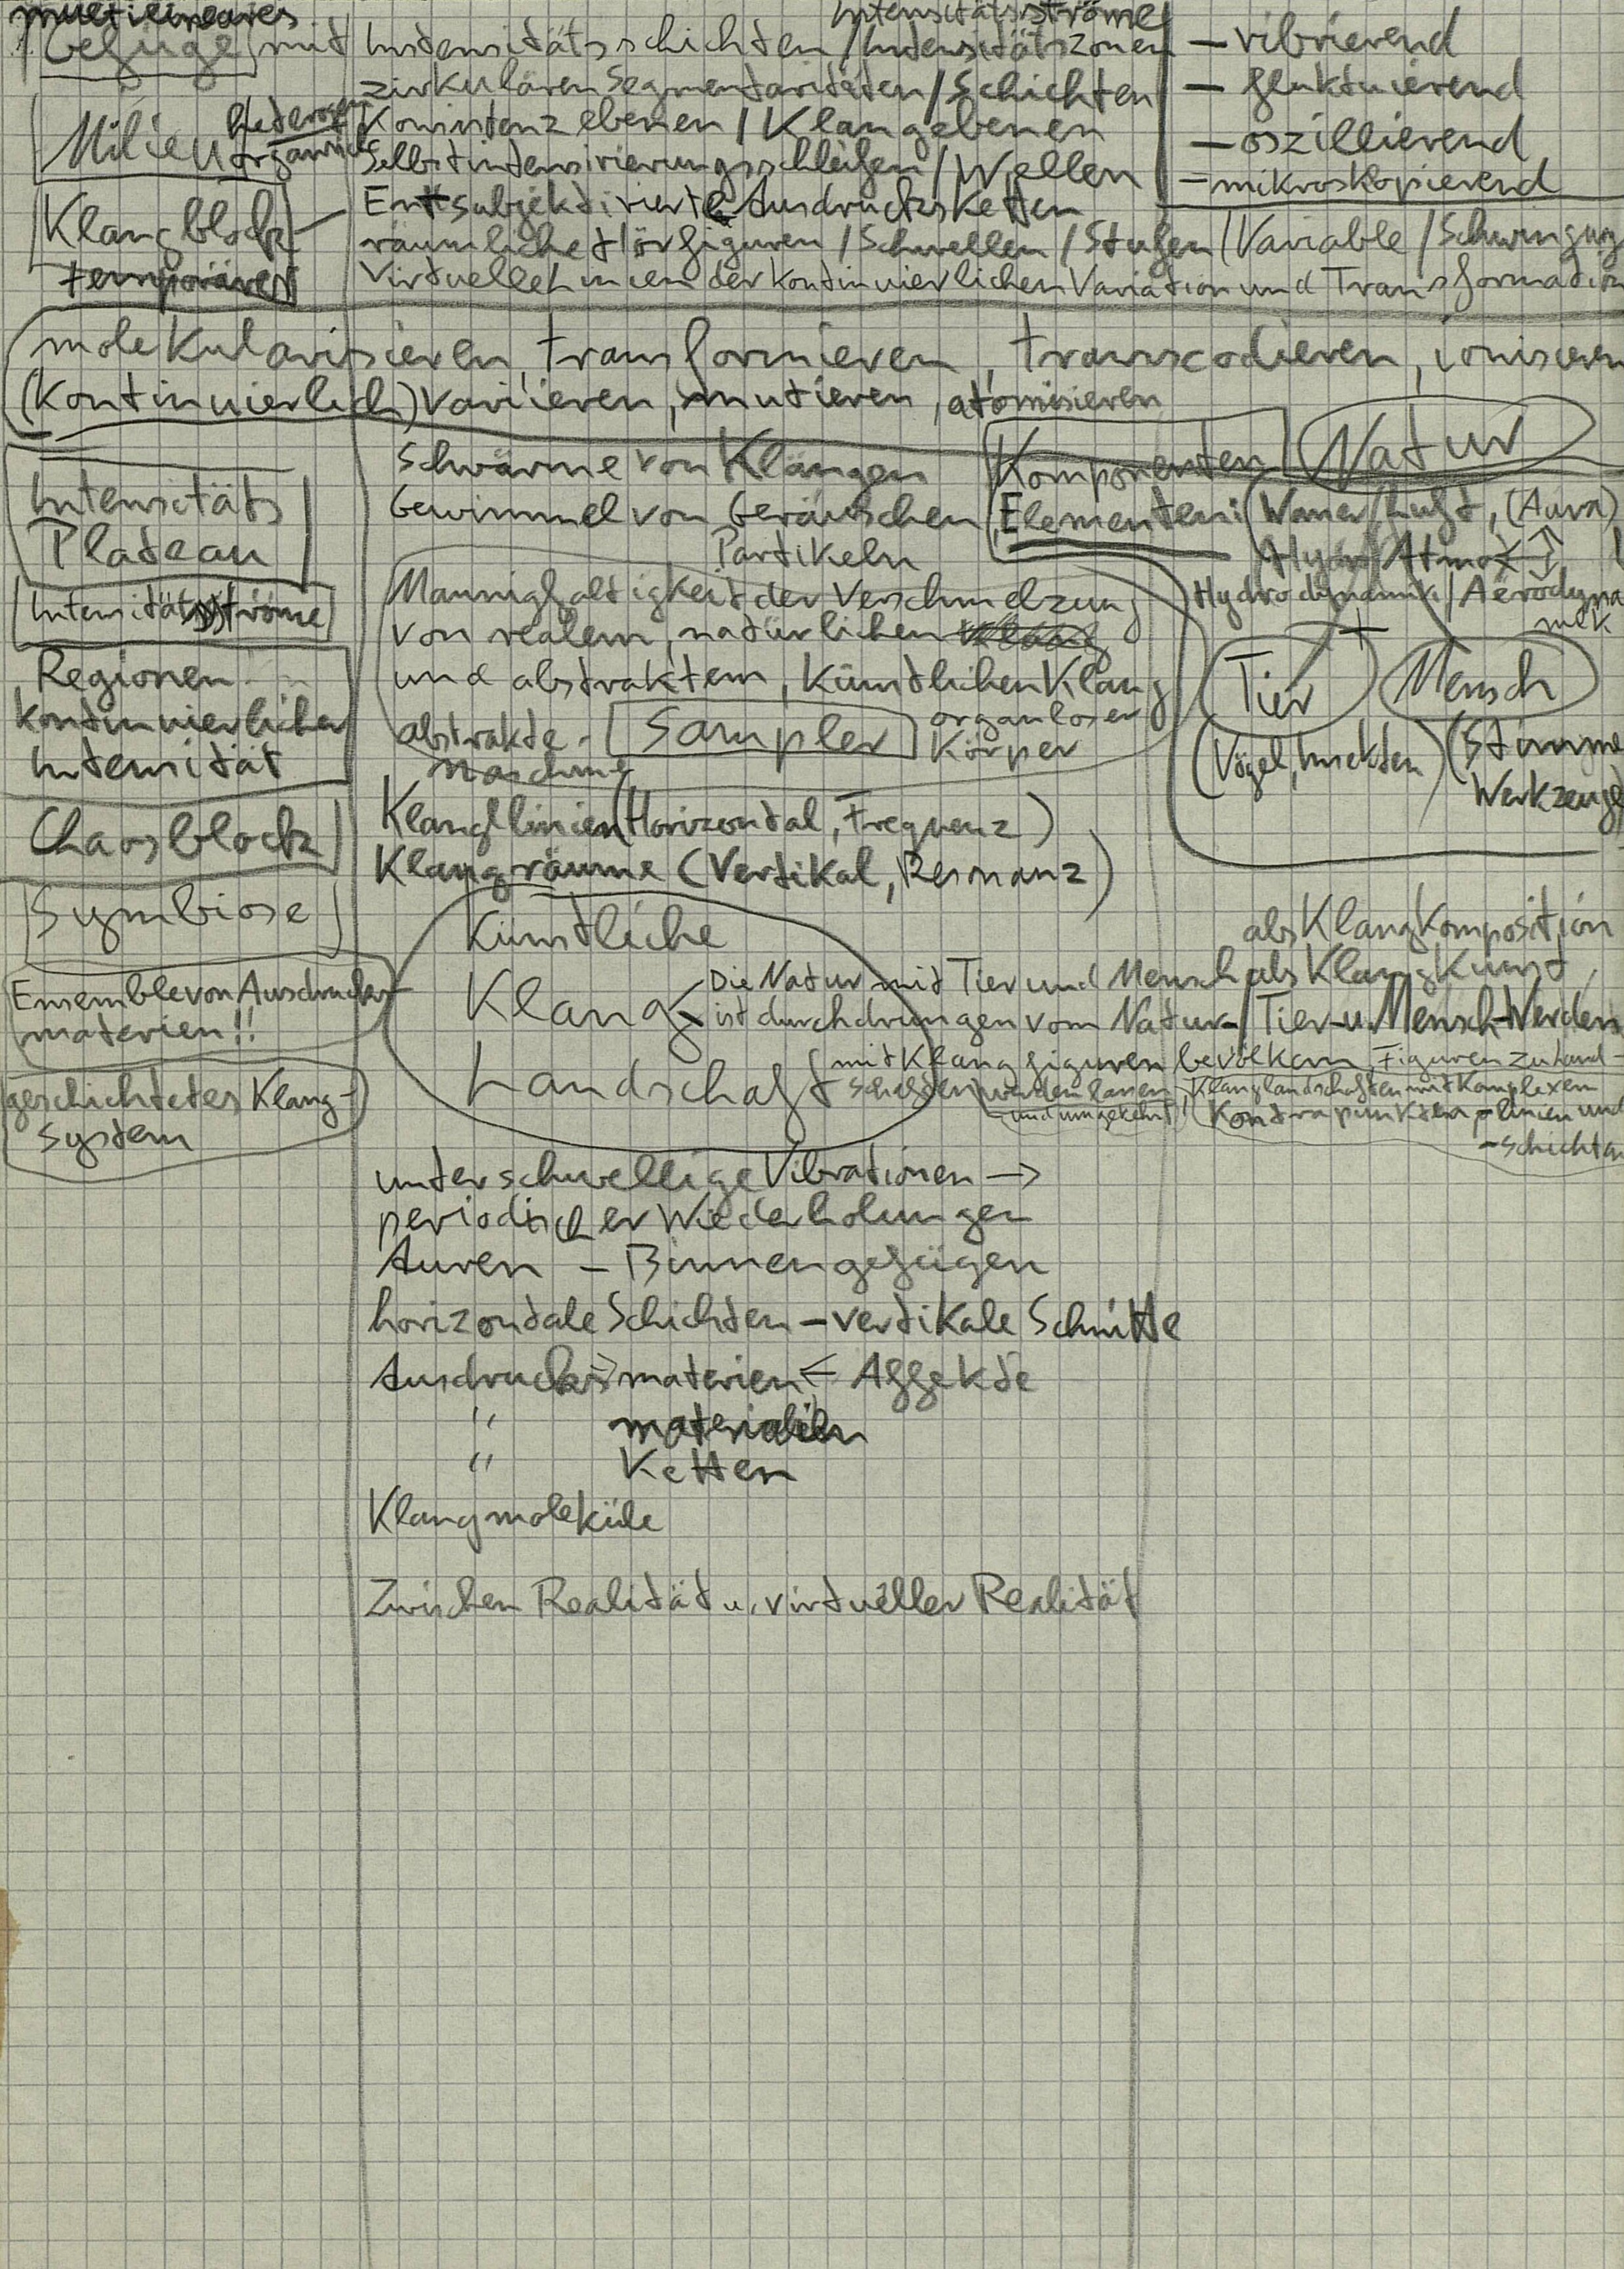 multilineares
Gefüge mit
Intensitätsströme
Intensitätsschichten / Intensitätszonen
zirkulären Segmentaritäten / Schichten
Milieu heterogen organisch
Konsistenzebenen / Klangebenen
Selbstintensivierungsschleifen / Wellen
– vibrierend
– fluktuierend
– oszillierend
– mikroskopierend
Klangblock –
temporärer
Entsubjektivierte Ausdrucksketten
räumliche Hörfiguren / Schwellen / Stufen / Variable / Schwingung
Virtuelle Linien der kontinuierlichen Variation und Transformation
molekularisieren, transformieren, transcodieren, ionisieren
(kontinuierlich) variieren, mutieren, atomisieren
Intensitäts
Plateau
Intensitätsströme
Regionen
kontinuierlicher
Intensität
Chaosblock
Symbiose
Ensemble von Ausdrucks-
materien!!
geschichtetes Klang-
system
Schwärme von Klängen
Gewimmel von Geräuschen
Partikeln
Mannigfaltigkeit der Verschmelzung
von realem, natürlichen
und abstraktem, künstlichen Klang
abstrakte
Maschine
Sampler
organloser
Körper
Klanglinien (Horizontal, Frequenz)
Klangräume (Vertikal, Resonanz)
Komponenten
Natur
Elementen: (Wasser / Luft, (Aura)
Hydro / Atmo
Hydrodynamik / Aerodyna
mik
+
Tier
Mensch
(Vögel, Insekten)
(Stimme
Werkzeuge)
Künstliche
Klang
Landschaft
als Klangkomposition
Die Natur mit Tier und Mensch als Klangkunst,
ist durchdrungen vom Natur- / Tier- u. Mensch-Werden
mit Klangfiguren bevölkern, Figuren zu Land-
schaften werden lassen
und umgekehrt
Klanglandschaften mit komplexen
Kontrapunkten, -linien und
-schichten
unterschwellige Vibrationen →
periodischer Wiederholungen
Auren – Binnengefügen
horizontale Schichten – vertikale Schnitte
Ausdrucks> materien ← Affekte
" materialien
" Ketten
Klangmoleküle
Zwischen Realität u. virtueller Realität